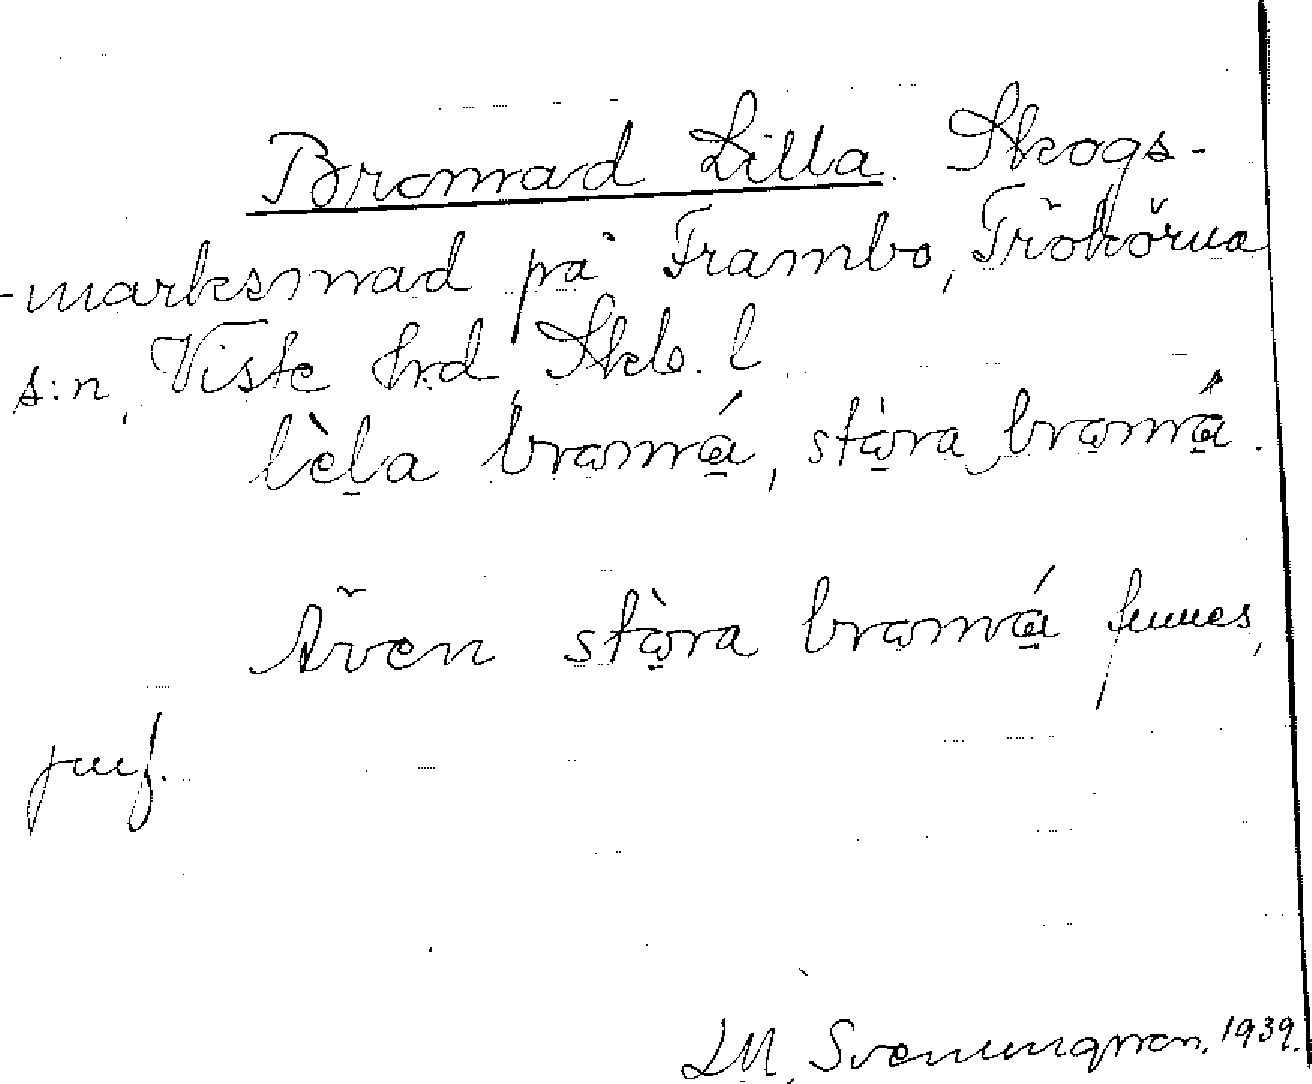 Bromad Lilla. Skogs-
-marksmad på Frambo, Trökörna
s:n, Viste hrd, Skb. l.
lèla bromá, stòra bromá.
Även stòra bromá finnes,
jmf.
LM. Svenungsson. 1939.